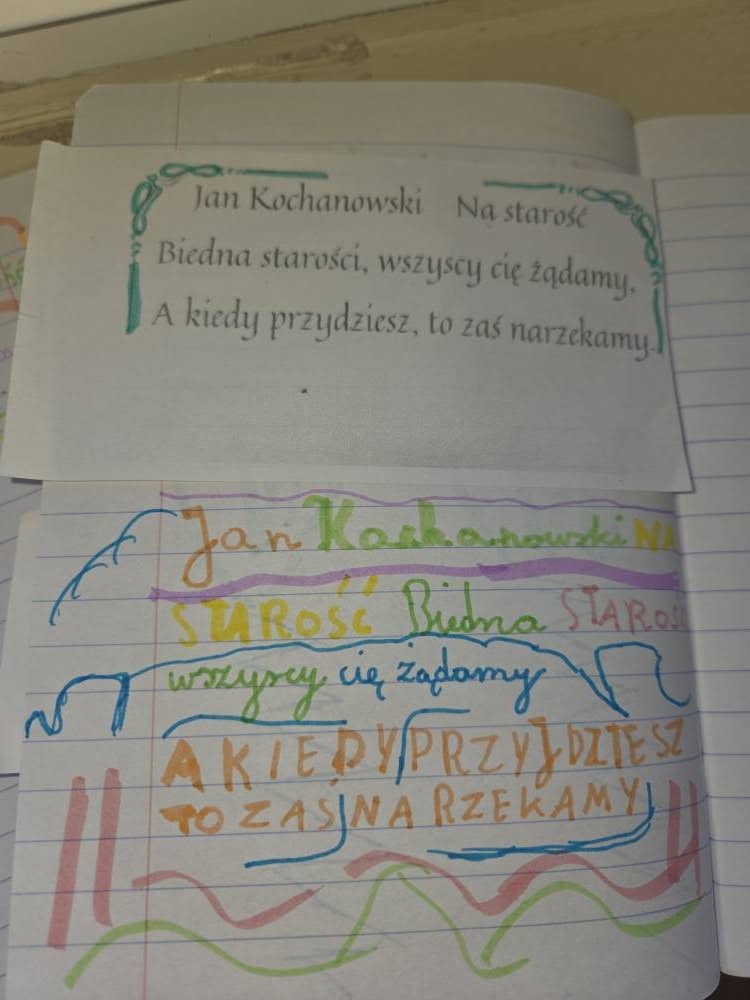 Jan Kochanowski Na starość
Biedna starości, wszyscy cię żądamy,
A kiedy przydziesz, to zaś narzekamy.
Jan Kochanowski NA
STAROŚĆ Biedna STAROŚC
wszyscy cię żądamy
A KIEDY PRZYJDZIESZ
TO ZAS NA RZEKAMY